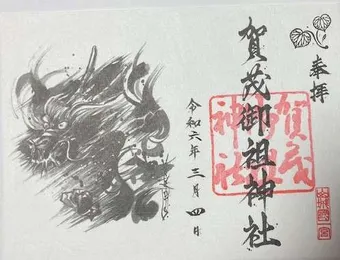 奉拝
賀茂御祖神社
賀茂
御祖
神社
令和六年三月四日